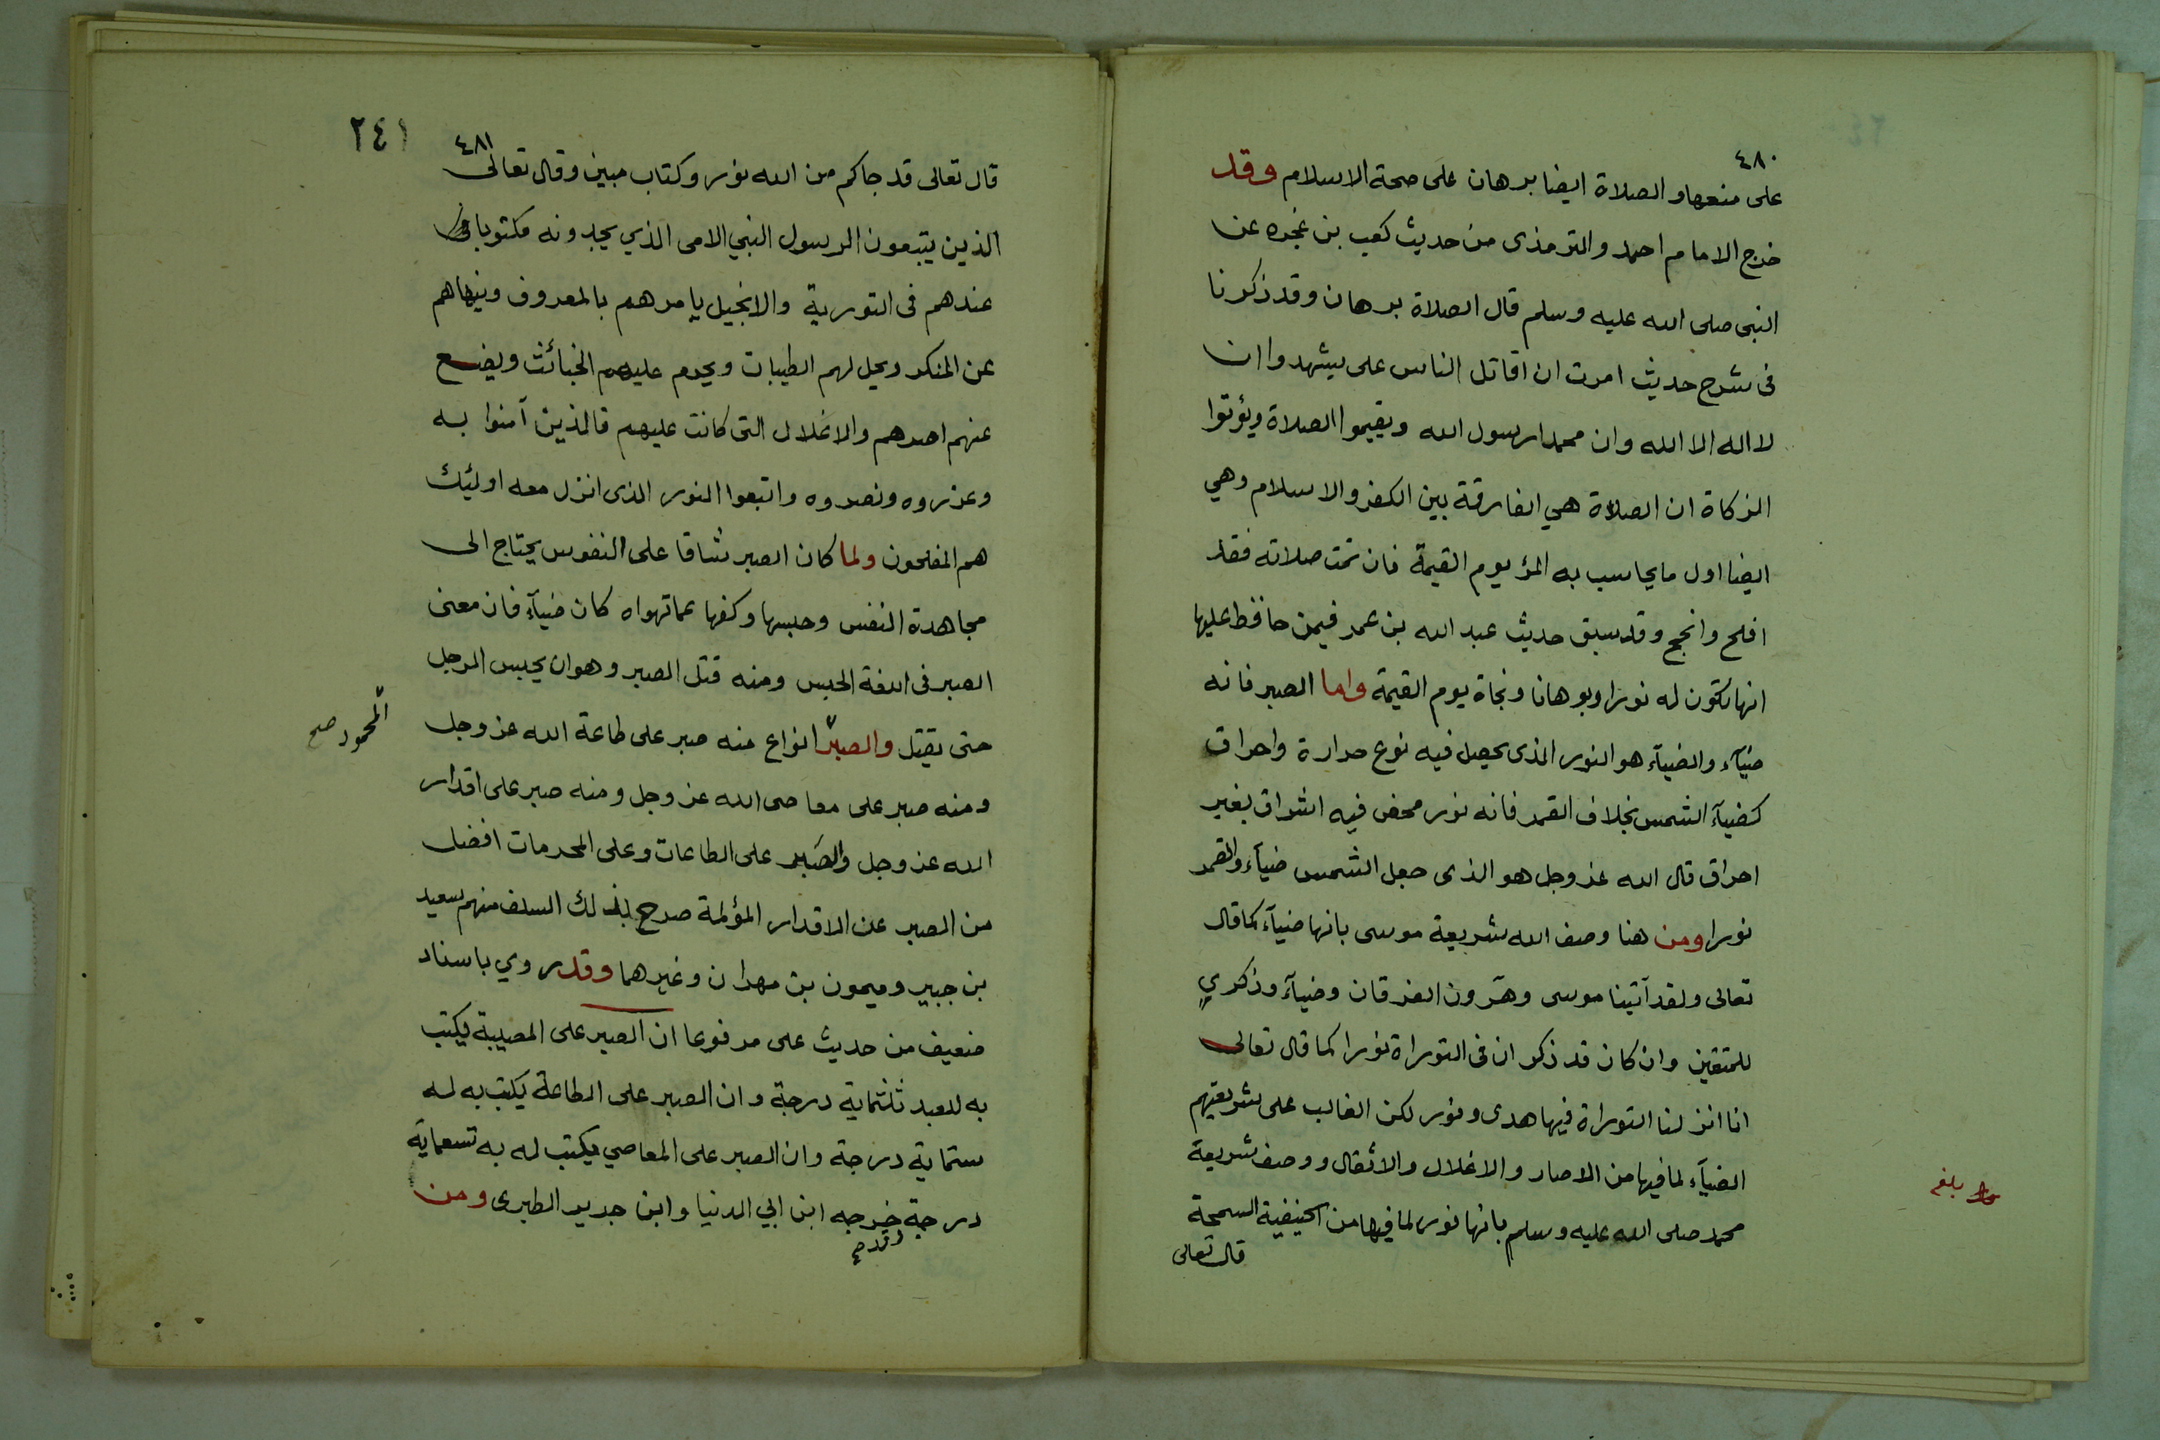 ٤٨٠
على منعها والصلاة ايضا برهان على صحة الاسلام وقد
خرج الامام احمد والترمذى من حديث كعب بن عجره عن
النبى صلى الله عليه وسلم قال الصلاة برهان وقد ذكرنا
فى شرح حديث امرت ان اقاتل الناس على يشهدوا ان
لا اله الا الله وان محمدا رسول الله ويقيموا الصلاة ويؤتوا
الزكاة ان الصلاة هي الفارقة بين الكفر والاسلام وهي
ايضا اول ما يحاسب به المرؤ يوم القيمة فان تمت صلاته فقد
افلح وانجح وقد سبق حديث عبد الله بن عمر فيمن حافظ عليها
انها تكون له نورا وبرهانا ونجاة يوم القيمة واما الصبر فانه
ضيآء والضيآء هو النور الذى يحصل فيه نوع حرارة واحراق
كضيآء الشمس بخلاف القمر فانه نور محض فيه اشراق بغير
احراق قال الله عز وجل هو الذى جعل الشمس ضيآء والقمر
نورا ومن هنا وصف الله شريعة موسى بانها ضيآء كما قال
تعالى ولقد آتينا موسى وهرون الفرقان وضيآء وذكري
للمتقين وان كان قد ذكر ان فى التوراة نورا كما قال تعالى
انا انزلنا التوراة فيها هدى ونور لكن الغالب على شريعتهم
الضيآء لما فيها من الاصار والاغلال والاثقال ووصف شريعة
محمد صلى الله عليه وسلم بانها نور لما فيها من الحنيفية السمحة
قال تعالى
بلغ
٢٤١
٤٨١
قال تعالى قد جاكم من الله نور وكتاب مبين وقال تعالى
الذين يتبعون الرسول النبي الامى الذي يجدونه مكتوبا
عندهم فى التورية والانجيل يامرهم بالمعروف وينهاهم
عن المنكر ويحل لهم الطيبات ويحرم عليهم الخبائث ويضع
عنهم اصرهم والاغلال التى كانت عليهم فالذين آمنوا به
وعزروه ونصروه واتبعوا النور الذى انزل معه اولئيك
هم المفلحون ولما كان الصبر شاقا على النفوس يحتاج الى
مجاهدة النفس وحبسها وكفها عما تهواه كان ضيآء فان معنى
الصبر فى اللغة الحبس ومنه قتل الصبر وهو ان يحبس الرجل
حتى يقتل والصبر انواع منه صبر على طاعة الله عز وجل
المحمود صح
ومنه صبر على معاصى الله عز وجل ومنه صبر على اقدار
الله عز وجل والصبر على الطاعات وعلى المحرمات افضل
من الصبر عن الاقدار المؤلمة صرح بذلك السلف منهم سعيد
بن جبير وميمون بن مهران وغيرهما وقد روي باسناد
ضعيف من حديث على مرفوعا ان الصبر على المصيبة يكتب
به للعبد ثلثماية درجة وان الصبر على الطاعة يكتب به له
ستماية درجة وان الصبر على المعاصي يكتب له به تسعماية
درجة خرجه ابن ابي الدنيا وابن جرير الطبرى ومن
وقد صح